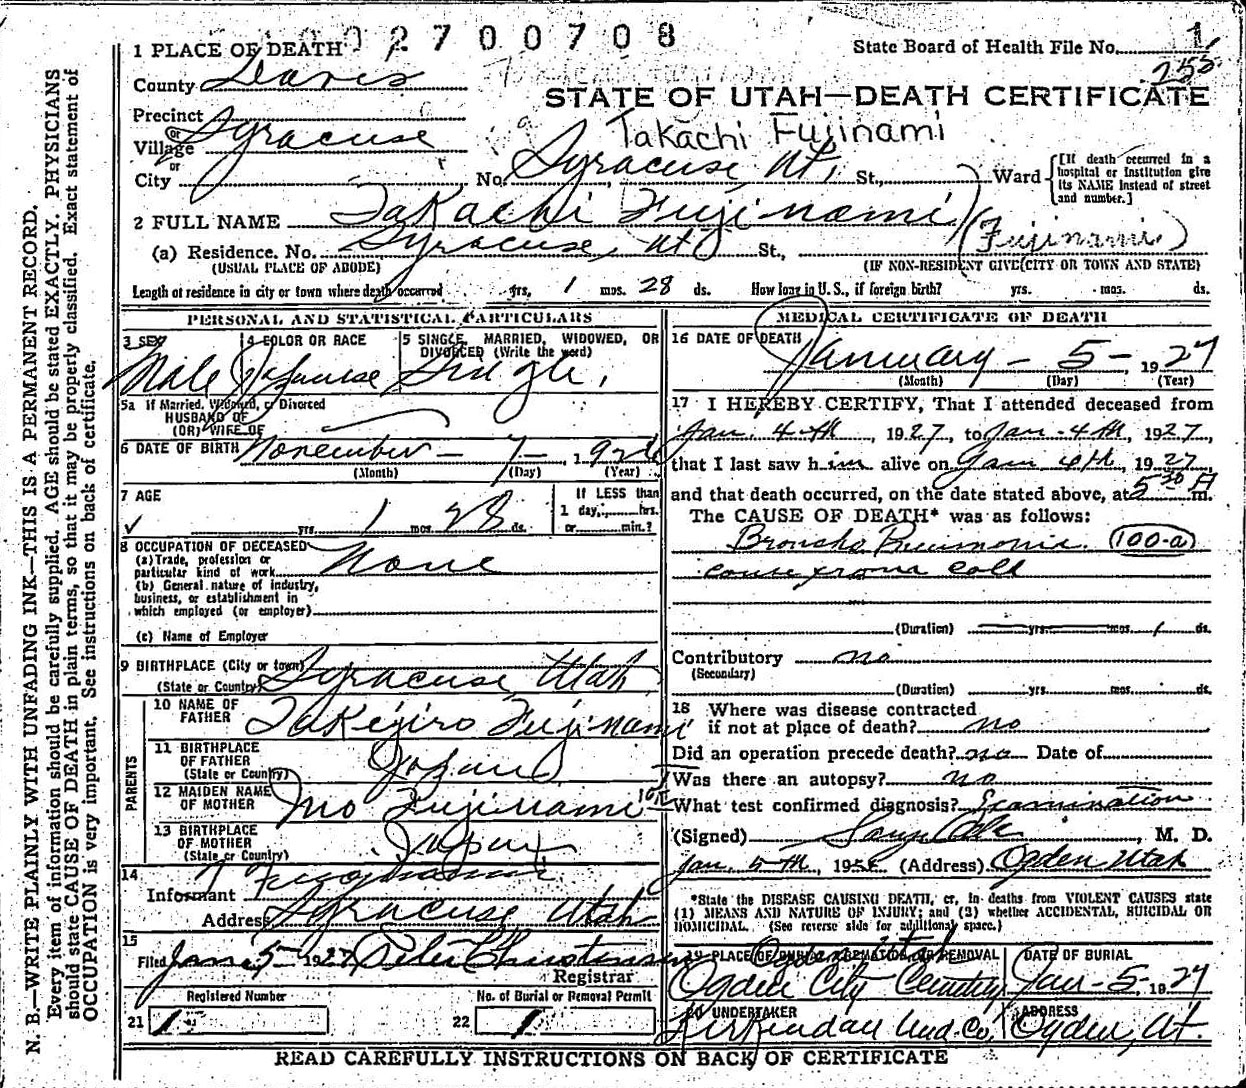 2700708
1 PLACE OF DEATH
State Board of Health File No. 1
County Davis
255
STATE OF UTAH—DEATH CERTIFICATE
Precinct
or
Village Syracuse
Takachi Fujinami
or
City No. Syracuse Ut, St., Ward
[If death occurred in a hospital or institution give its NAME instead of street and number.]
2 FULL NAME Takachi Fujinami
(Fujinami)
(a) Residence. No. Syracuse, Ut St.,
(USUAL PLACE OF ABODE) (IF NON-RESIDENT GIVE CITY OR TOWN AND STATE)
Length of residence in city or town where death occurred yrs. 1 mos. 28 ds. How long in U. S., if foreign birth? yrs. mos. ds.
PERSONAL AND STATISTICAL PARTICULARS
3 SEX
Male
4 COLOR OR RACE
Japanese
5 SINGLE, MARRIED, WIDOWED, OR DIVORCED (Write the word)
Single,
5a If Married, Widowed, or Divorced
HUSBAND OF
(OR) WIFE OF
6 DATE OF BIRTH November - 7 - 192
(Month) (Day) (Year)
7 AGE
yrs. 1 mos. 28 ds.
If LESS than
1 day, hrs.
or min.?
8 OCCUPATION OF DECEASED
(a) Trade, profession or
particular kind of work None
(b) General nature of industry,
business, or establishment in
which employed (or employer)
(c) Name of Employer
9 BIRTHPLACE (City or town)
(State or Country) Syracuse Utah
PARENTS
10 NAME OF
FATHER Takijiro Fujinami
11 BIRTHPLACE
OF FATHER
(State or Country) Japan
12 MAIDEN NAME
OF MOTHER Mo Fujinami
13 BIRTHPLACE
OF MOTHER
(State or Country) Japan
14
Informant
Address Syracuse Utah
15
Filed Jan 5 - 1927 Peter Christensen
Registrar
Registered Number
21 1
No. of Burial or Removal Permit
22 1
MEDICAL CERTIFICATE OF DEATH
16 DATE OF DEATH
January - 5 - 1927
(Month) (Day) (Year)
17 I HEREBY CERTIFY, That I attended deceased from
Jan. 4th, 1927, to Jan. 4th, 1927,
that I last saw him alive on Jan 4th, 1927,
and that death occurred, on the date stated above, at 5 30 A m.
The CAUSE OF DEATH* was as follows:
Broncho Pneumonia. (100-a)
cause from cold
(Duration) yrs. mos. 1 ds.
Contributory no
(Secondary)
(Duration) yrs. mos. ds.
18 Where was disease contracted
if not at place of death? no
Did an operation precede death? no Date of
Was there an autopsy? no
What test confirmed diagnosis? Examination
(Signed) M. D.
Jan. 5th, 19 (Address) Ogden Utah
*State the DISEASE CAUSING DEATH, or, in deaths from VIOLENT CAUSES state
(1) MEANS AND NATURE OF INJURY; and (2) whether ACCIDENTAL, SUICIDAL OR
HOMICIDAL. (See reverse side for additional space.)
19 PLACE OF BURIAL, CREMATION, OR REMOVAL
Ogden Utah
Ogden City Cemetery
DATE OF BURIAL
Jan - 5, 1927
20 UNDERTAKER
Kirkendall Und. Co,
ADDRESS
Ogden, Ut.
READ CAREFULLY INSTRUCTIONS ON BACK OF CERTIFICATE
N. B.—WRITE PLAINLY WITH UNFADING INK—THIS IS A PERMANENT RECORD.
Every item of information should be carefully supplied. AGE should be stated EXACTLY. PHYSICIANS
should state CAUSE OF DEATH in plain terms, so that it may be properly classified. Exact statement of
OCCUPATION is very important. See instructions on back of certificate.